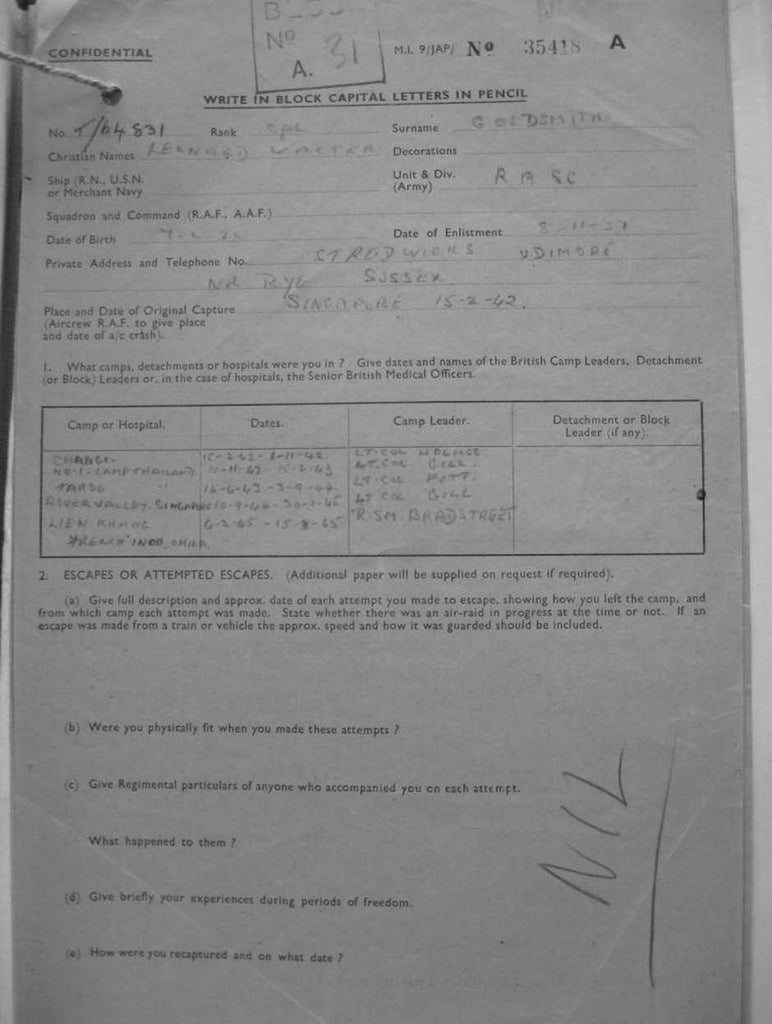 CONFIDENTIAL
Nº
A. 31
M.I. 9/JAP/ Nº 35418 A
WRITE IN BLOCK CAPITAL LETTERS IN PENCIL
No. T/64831 Rank CPL Surname GOLDSMITH
Christian Names WALTER Decorations
Ship (R.N., U.S.N. or Merchant Navy
Unit & Div. (Army) RASC
Squadron and Command (R.A.F., A.A.F.)
Date of Birth Date of Enlistment
Private Address and Telephone No. STREDWICKS UDIMORE
NR RYE SUSSEX
Place and Date of Original Capture SINGAPORE 15-2-42.
(Aircrew R.A.F. to give place
and date of a/c crash).
1. What camps, detachments or hospitals were you in ? Give dates and names of the British Camp Leaders, Detachment
(or Block) Leaders or, in the case of hospitals, the Senior British Medical Officers.
Camp or Hospital. Dates. Camp Leader. Detachment or Block Leader (if any).
CHANGI- 15-2-42 - LT-COL HOLMES
NO.1.CAMP THAILAND LT.COL GILL.
TARSO " 16-6-43 - 3-9-44. LT.COL
RIVER VALLEY. SINGAPORE 10-9-44 - 30-1-45 LT COL GILL
LIEN KHANG 6-2-45 - 15-8-45 R.S.M. BRADSTREET
FRENCH INDO CHINA
2. ESCAPES OR ATTEMPTED ESCAPES. (Additional paper will be supplied on request if required).
(a) Give full description and approx. date of each attempt you made to escape, showing how you left the camp, and
from which camp each attempt was made. State whether there was an air-raid in progress at the time or not. If an
escape was made from a train or vehicle the approx. speed and how it was guarded should be included.
(b) Were you physically fit when you made these attempts ?
(c) Give Regimental particulars of anyone who accompanied you on each attempt.
What happened to them ?
(d) Give briefly your experiences during periods of freedom.
(e) How were you recaptured and on what date ?
NIL